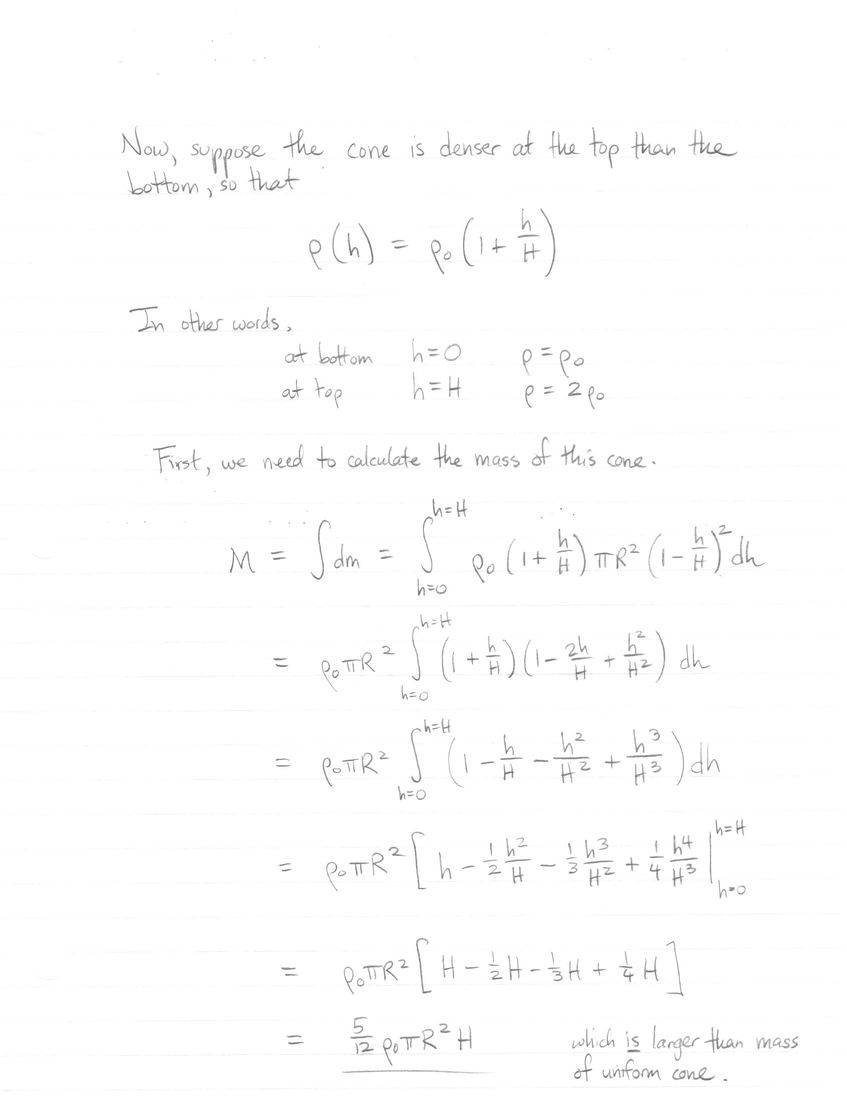 Now, suppose the cone is denser at the top than the
bottom, so that
ρ(h) = ρ₀ (1 + h/H)
In other words,
at bottom h=0 ρ = ρ₀
at top h=H ρ = 2ρ₀
First, we need to calculate the mass of this cone.
M = ∫ dm = ∫_{h=0}^{h=H} ρ₀ (1 + h/H) πR² (1 - h/H)² dh
= ρ₀πR² ∫_{h=0}^{h=H} (1 + h/H)(1 - 2h/H + h²/H²) dh
= ρ₀πR² ∫_{h=0}^{h=H} (1 - h/H - h²/H² + h³/H³) dh
= ρ₀πR² [ h - 1/2 h²/H - 1/3 h³/H² + 1/4 h⁴/H³ |_{h=0}^{h=H}
= ρ₀πR² [ H - 1/2 H - 1/3 H + 1/4 H ]
= 5/12 ρ₀πR²H which is larger than mass
of uniform cone.